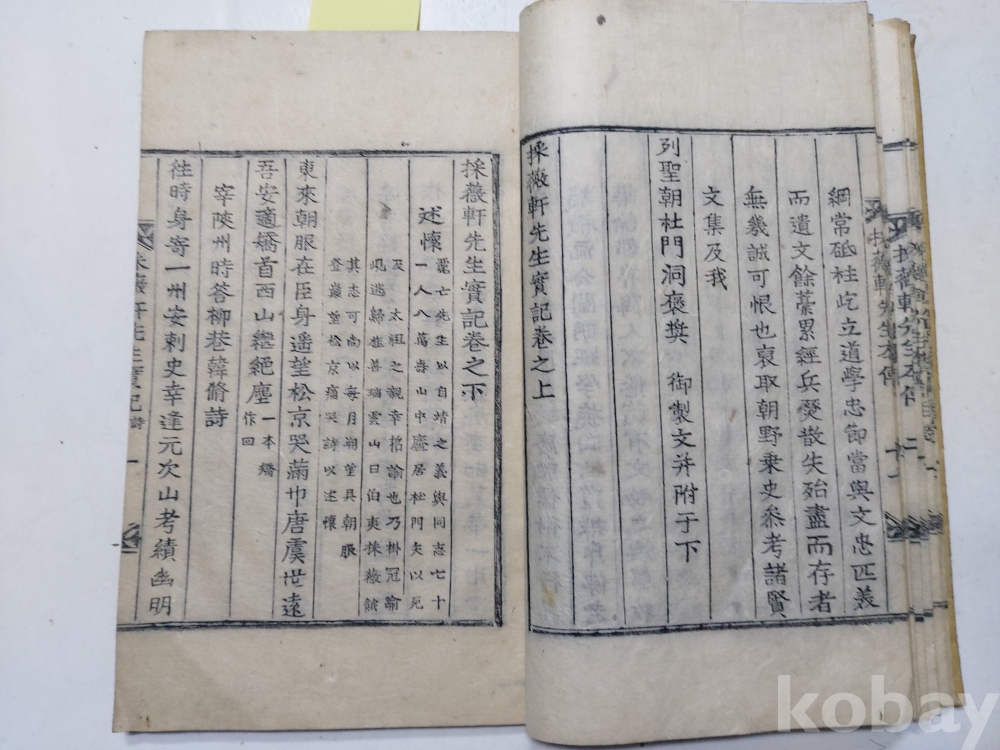 綱常砥柱屹立道學忠節當與文忠匹義
而遺文餘藁累經兵燹散失殆盡而存者
無幾誠可恨也裒取朝野乗史叅考諸賢
文集及我
列聖朝杜門洞褒奬 御製文并附于下
採薇軒先生實記卷之上
採薇軒先生實記卷之下
述懷
麗亡先生以自靖之義與同志七十
一人入萬壽山中廬居杜門矢以死
及 太祖之親幸招諭也乃掛冠踰
峴逃歸雄善瑞雲山曰伯夷採薇餓
其志可尚以每月朔望具朝服
登巖望松京痛哭詩以述懷
東來朝服在臣身遥望松京哭滿巾唐虞世遠
吾安適矯首西山繼絶塵
一本矯
作回
宰陜州時答柳巷韓脩詩
徃時身寄一州安刺史幸逢元次山考績幽明
採薇軒先生實記 詩 一
kobay